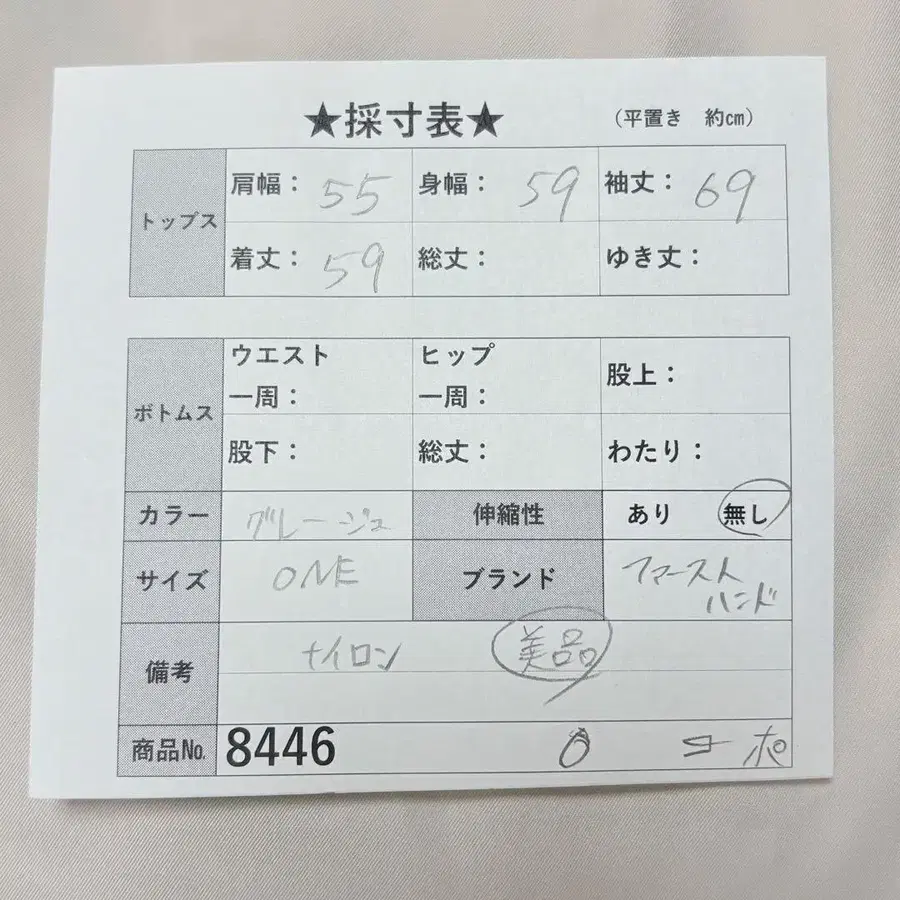 ★採寸表★ (平置き 約cm)
トップス
肩幅: 55 身幅: 59 袖丈: 69
着丈: 59 総丈: ゆき丈:
ボトムス
ウエスト一周: ヒップ一周: 股上:
股下: 総丈: わたり:
カラー グレージュ 伸縮性 あり 無し
サイズ ONE ブランド ファーストハンド
備考 ナイロン 美品
商品No. 8446 ホ